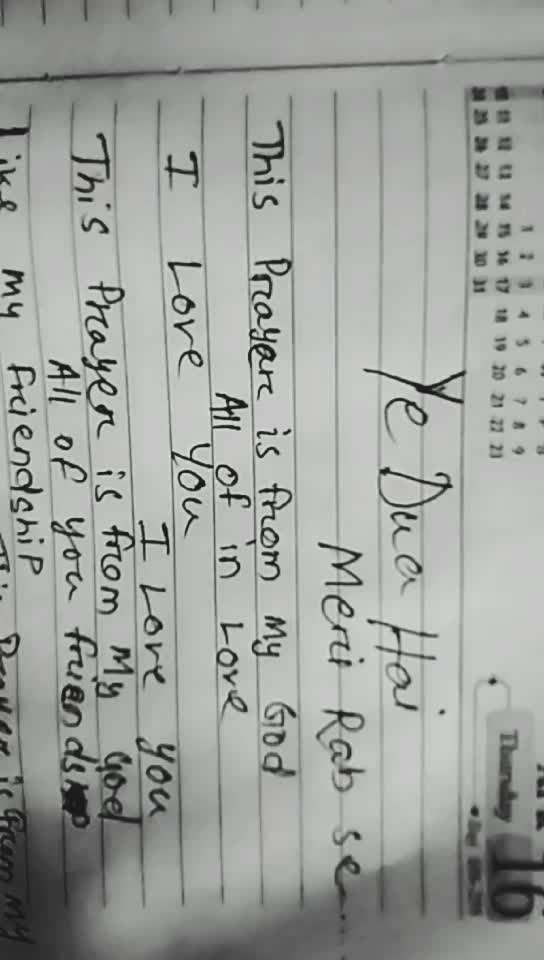 1 2 3 4 5 6 7 8 9
10 11 12 13 14 15 16 17 18 19 20 21 22 23
24 25 26 27 28 29 30 31
Thursday 16
Ye Dua Hai
Meri Rab se...
This Prayer is from My God
All of in Love
I Love You
I Love you
This Prayer is from My God
All of you friends
Like my friendship
This Prayer is from My